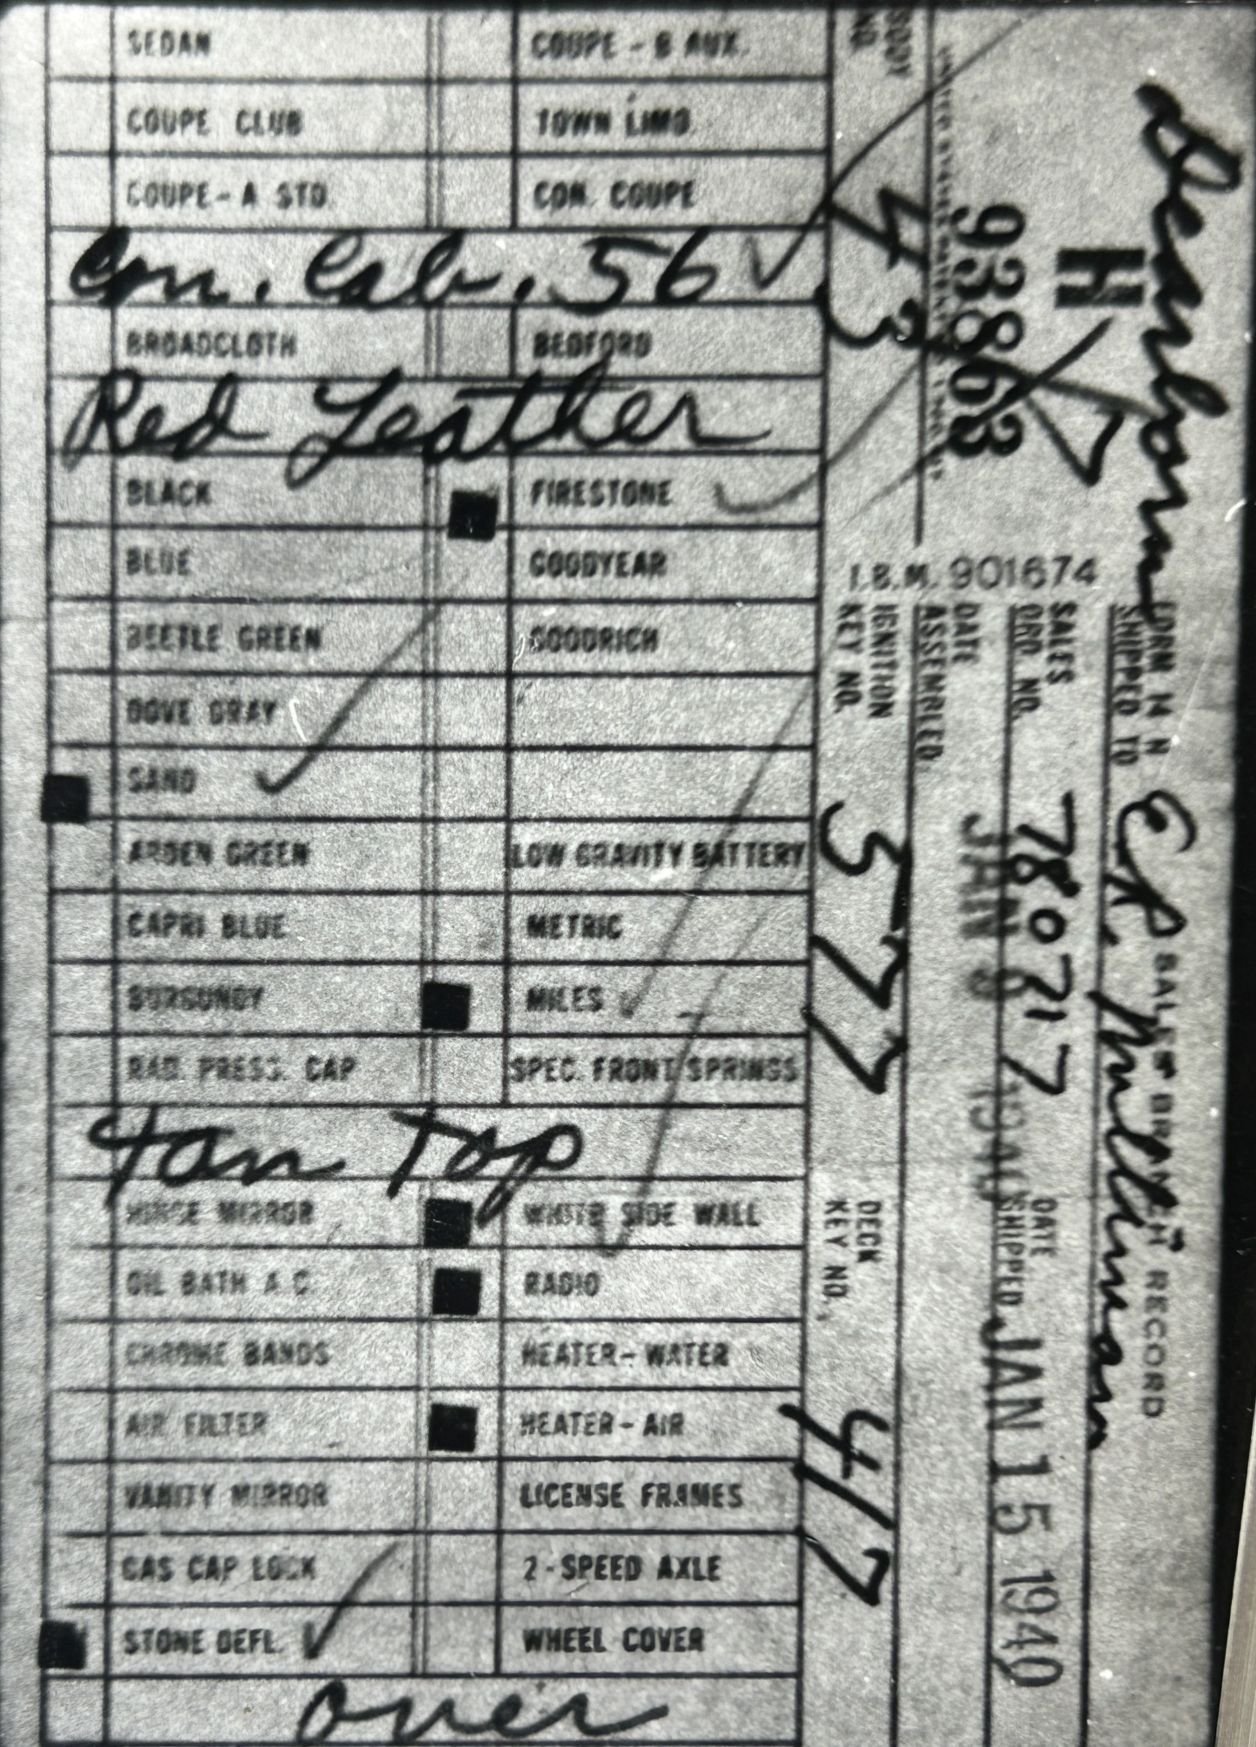 SEDAN COUPE - B AUX.
COUPE CLUB TOWN LIMO
COUPE - A STD. CON. COUPE
Con. Cab. 56
BROADCLOTH BEDFORD
Red Leather
BLACK FIRESTONE
BLUE GOODYEAR
BEETLE GREEN GOODRICH
DOVE GRAY
SAND
ARDEN GREEN LOW GRAVITY BATTERY
CAPRI BLUE METRIC
BURGUNDY MILES
RAD. PRESS. CAP SPEC. FRONT SPRINGS
Tan Top
HINGE MIRROR WHITE SIDE WALL
OIL BATH A.C. RADIO
CHROME BANDS HEATER - WATER
AIR FILTER HEATER - AIR
VANITY MIRROR LICENSE FRAMES
GAS CAP LOCK 2 - SPEED AXLE
STONE DEFL. WHEEL COVER
over
Dearborn
FORM 14 N SALES BRANCH RECORD
SHIPPED TO E.R. Millman
H
93863
SALES ORD. NO. 78071 7
I.B.M. 901674
DATE ASSEMBLED JAN 1940
DATE SHIPPED JAN 15 1940
BODY NO. 43
IGNITION KEY NO. 577
DECK KEY NO. 417